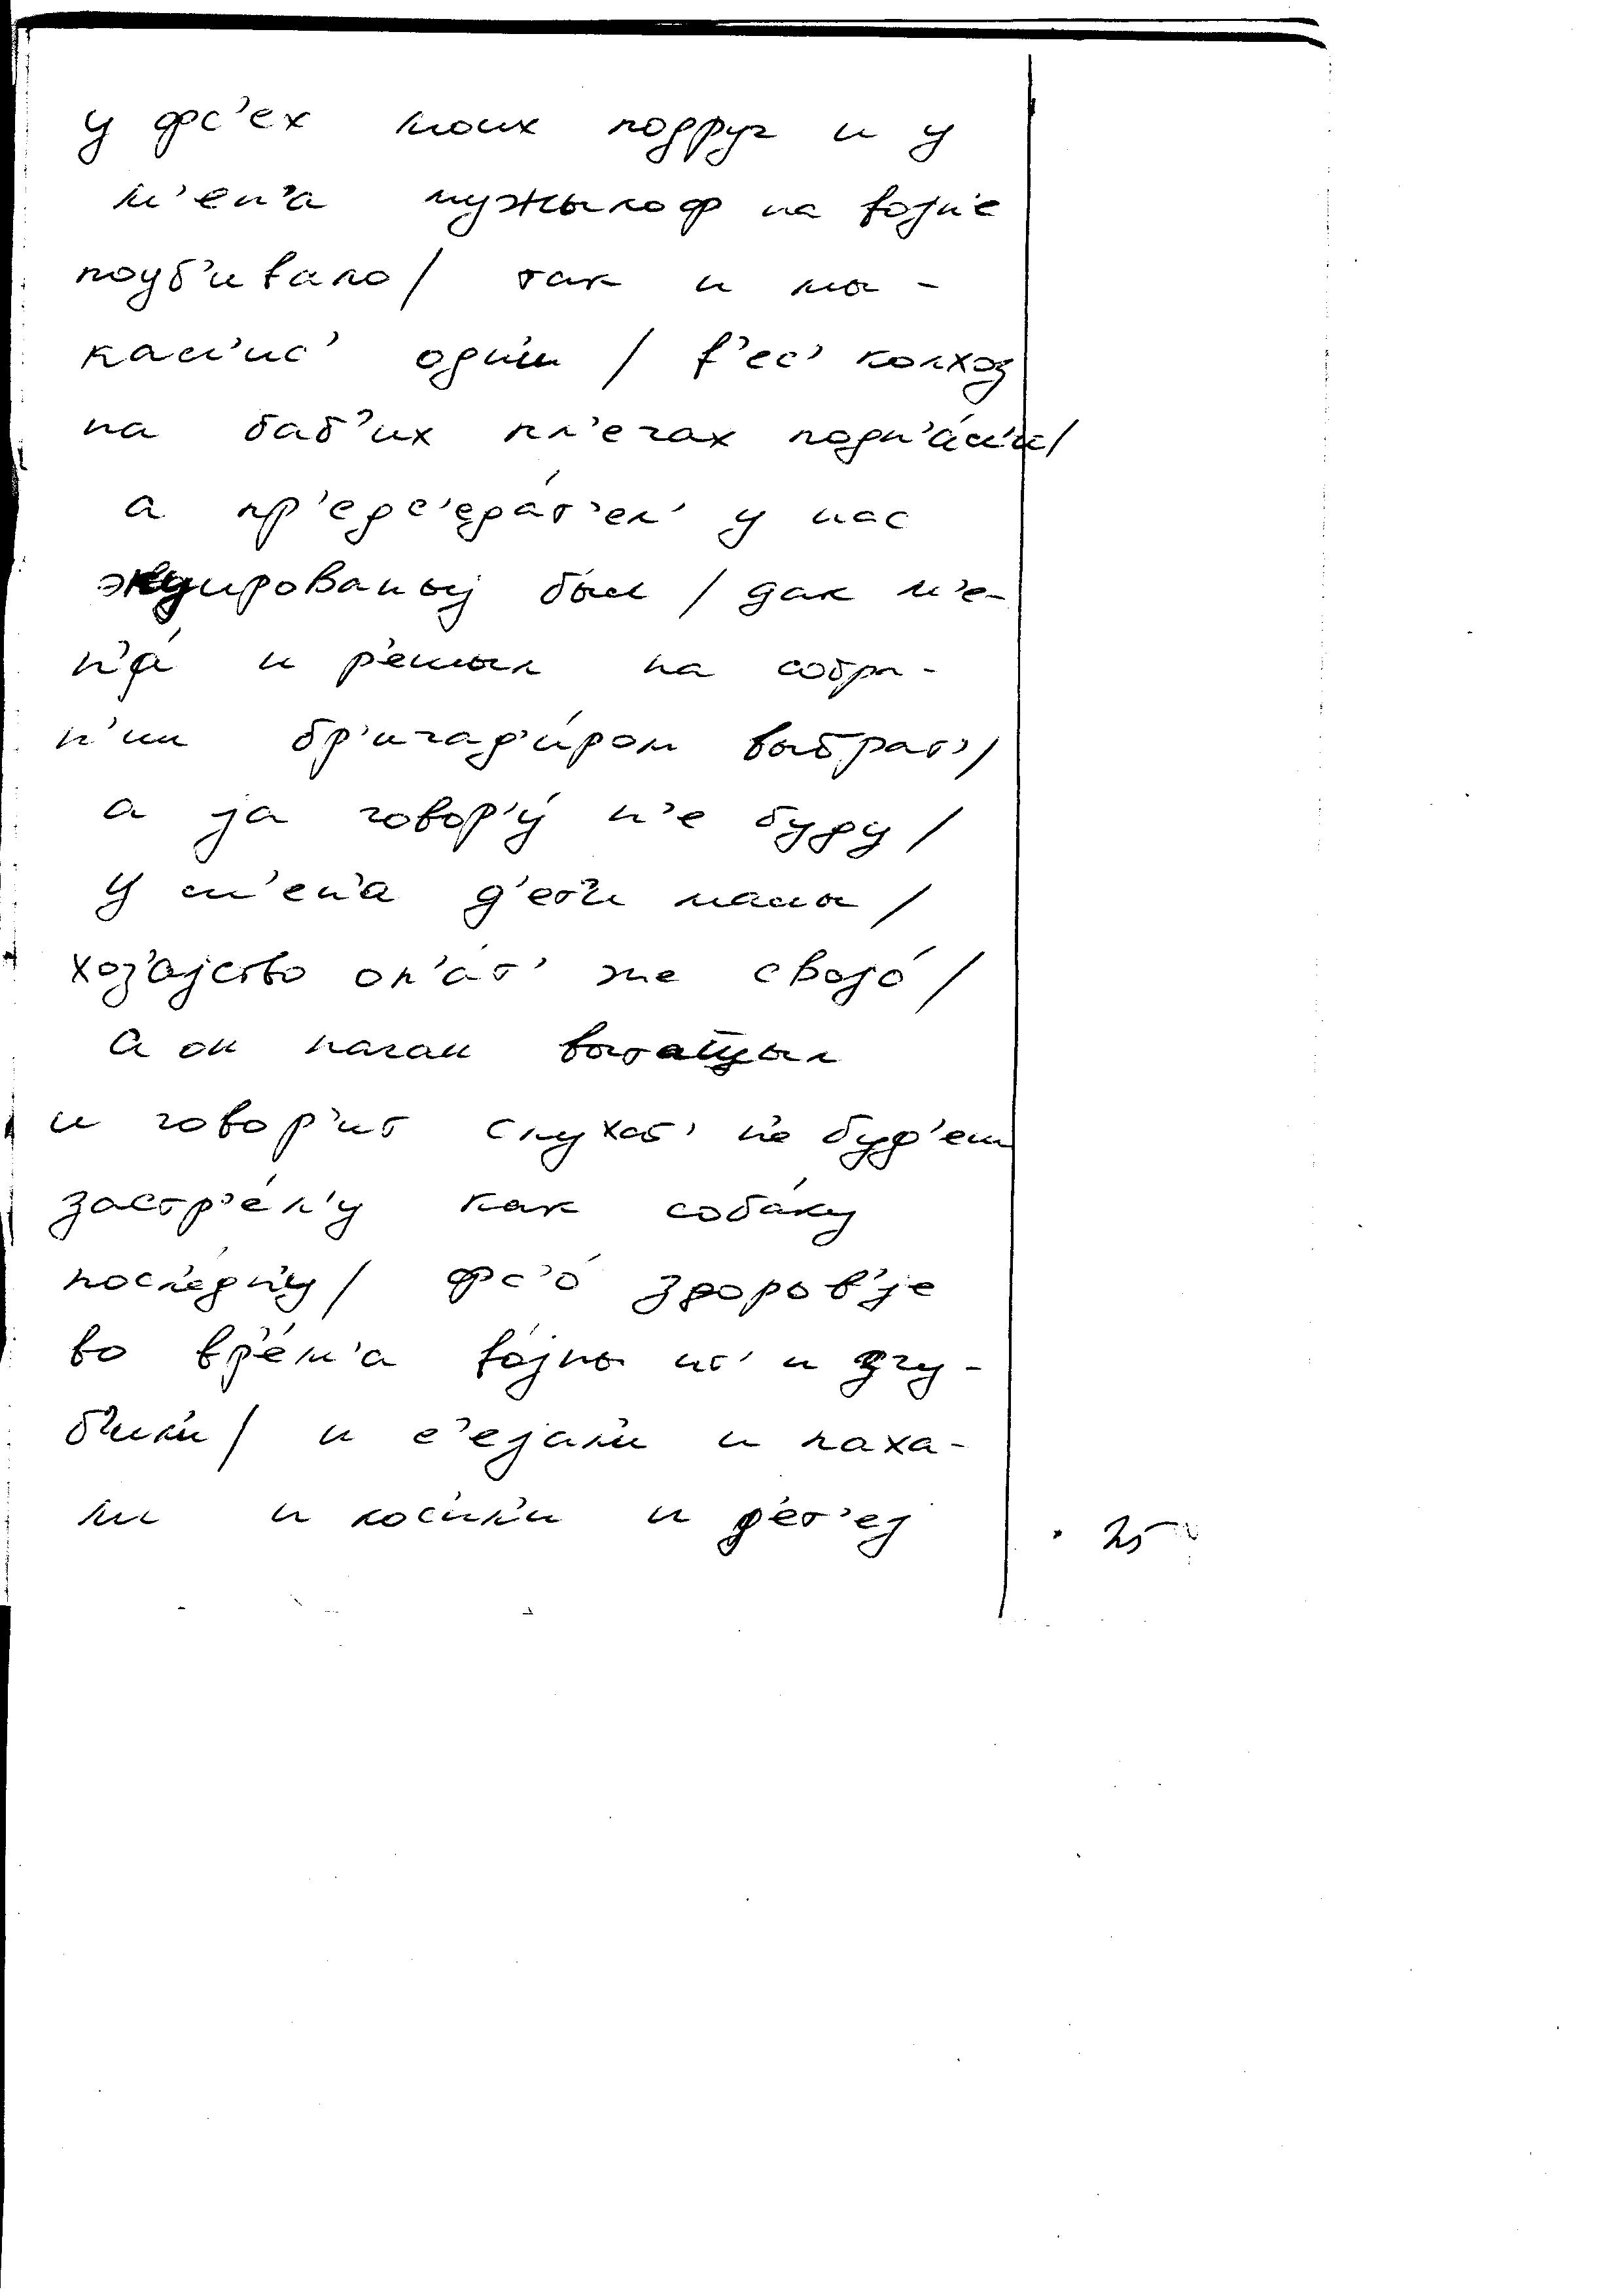 у фс'ех моих подруг и у
м'ен'а мужыкоф на војн'е
поуб'ивало/ так и мы-
кал'ис' одн'и / в'ес' колхоз
на баб'их пл'ечах подн'а́л'и/
а пр'едс'еда́т'ел' у нас
эвуированыј был / дак м'е-
н'а́ и р'ешыл на собра-
н'ии бр'игад'и́ром выбрат'/
а ја говор'у́ н'е буду /
у м'ен'а д'ет'и малы /
хоз'ајство оп'а́т' же својо́ /
а он наган вытащыл
и говор'ит слухат' н'е буд'еш
застр'е́л'у как соба́ку
посл'е́дн'у / фс'о́ здоров'је
во вр'е́м'а во́јны ит' и згу-
б'ил'и / и с'ејал'и и паха-
ли и кос'ил'и и д'ет'еј
25